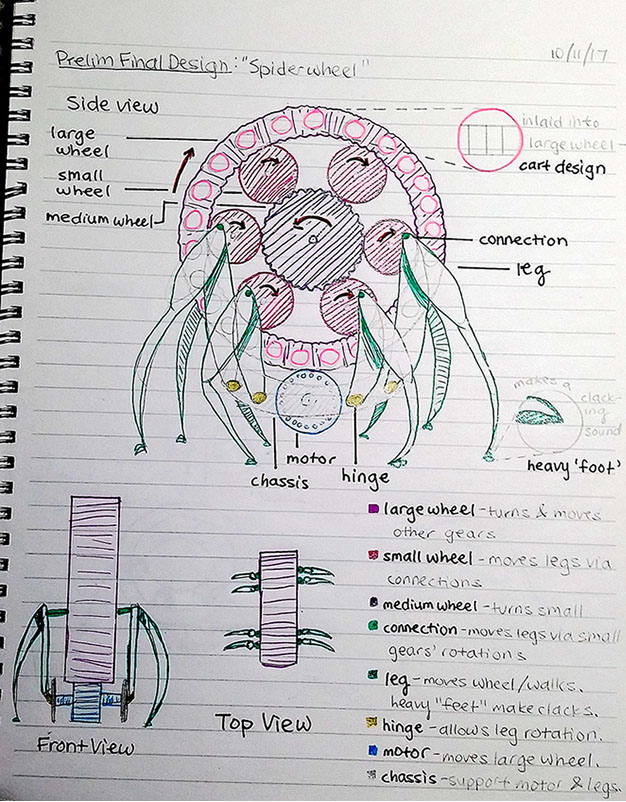 10/11/17
Prelim Final Design: "Spiderwheel"
Side view
large
wheel
small
wheel
medium wheel
inlaid into
large wheel
cart design
connection
leg
makes a
clack-
ing
sound
heavy 'foot'
motor
chassis
hinge
large wheel - turns & moves
other gears
small wheel - moves legs via
connections
medium wheel - turns small
connection - moves legs via small
gears' rotations
leg - moves wheel/walks.
heavy "feet" make clacks.
hinge - allows leg rotation.
motor - moves large wheel.
chassis - support motor & legs.
Front View
Top View